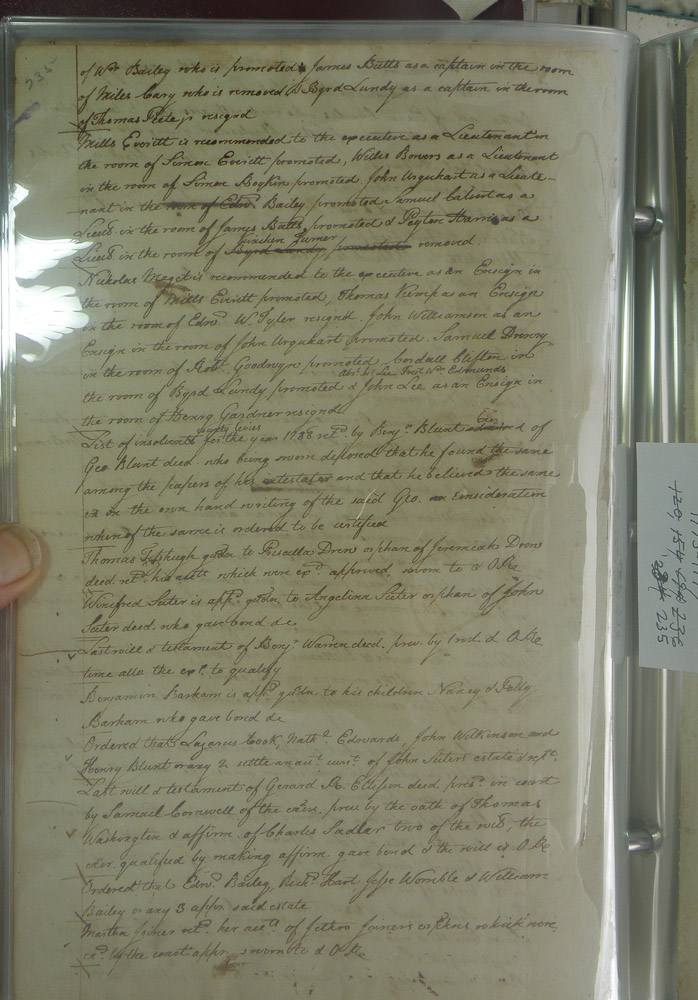 235
of Wm Bailey who is promoted & James Butts as a captain in the room
of Miles Cary who is removed & Byrd Lundy as a captain in the room
of Thomas Peete jr resignd
Mills Everitt is recommended to the executive as a Lieutenant in
the room of Simon Everitt promoted, Willis Bowers as a Lieutenant
in the room of Simon Boykin promoted. John Urquhart as a Lieute-
nant in the room of Edwd Bailey promoted Samuel Calvert as a
Lieut. in the room of James Butts promoted & Peyton Harris as a
Lieut in the room of Byrd Lundy promoted removed
Turner
Nicholas Meget is recommended to the executive as an Ensign in
the room of Mills Everitt promoted, Thomas Vump as an Ensign
in the room of Edwd. W. Tyler resigned. John Williamson as an
Ensign in the room of John Urquhart promoted. Samuel Drewry
in the room of Robt. Goodwyn promoted Cordall Clifton in
the room of Byrd Lundy promoted & John Lee as an Ensign in
the room of Henry Gardner resigned
List of insolvents for the year 1788 retd. by Benja. Blunt Exr of
county levies
Geo Blunt deced. who being sworn deposed that he found the same
among the papers of his intestator and that he believed the same
in the own hand writing of the said Geo. on Consideration
whereof the same is ordered to be certified
Thomas Fitzhugh gudn to Priscilla Drew orphan of Jeremiah Drew
deced retd. his accts which were exd. approved, sworn to & O.Re
Winifred Suter is appd. gudn. to Angelina Suter orphan of John
Suter deced. who gave bond &c
Last will & testament of Benja. Warren deced. prov. by 1 wit. & O.Re
time allo the exr. to qualify
Benjamin Barham is appd. gudn to his children Nancy & Polly
Barham who gave bond &c
Ordered that Lazarus Cook, Nathl. Edwards, John Wilkinson and
Henry Blunt or any 2 settle an acct curt. of John Suters estate & rept.
Last will & testament of Gerard R. Ellyson deced. presd. in court
by Samuel Cornwell of the exor. prov by the oath of Thomas
Washington & affirm. of Charles Sadler two of the wits, the
exor. qualified by making affirm. gave bond & the will is O Re
Ordered that Edwd. Bailey, Richd. Hart Jesse Womble & William
Bailey or any 3 appr. said estate
Martha Joiner retd. her acct. of Jethro Joiners orphans which were
exd. by the court appr. sworn to & O.Re
236
235